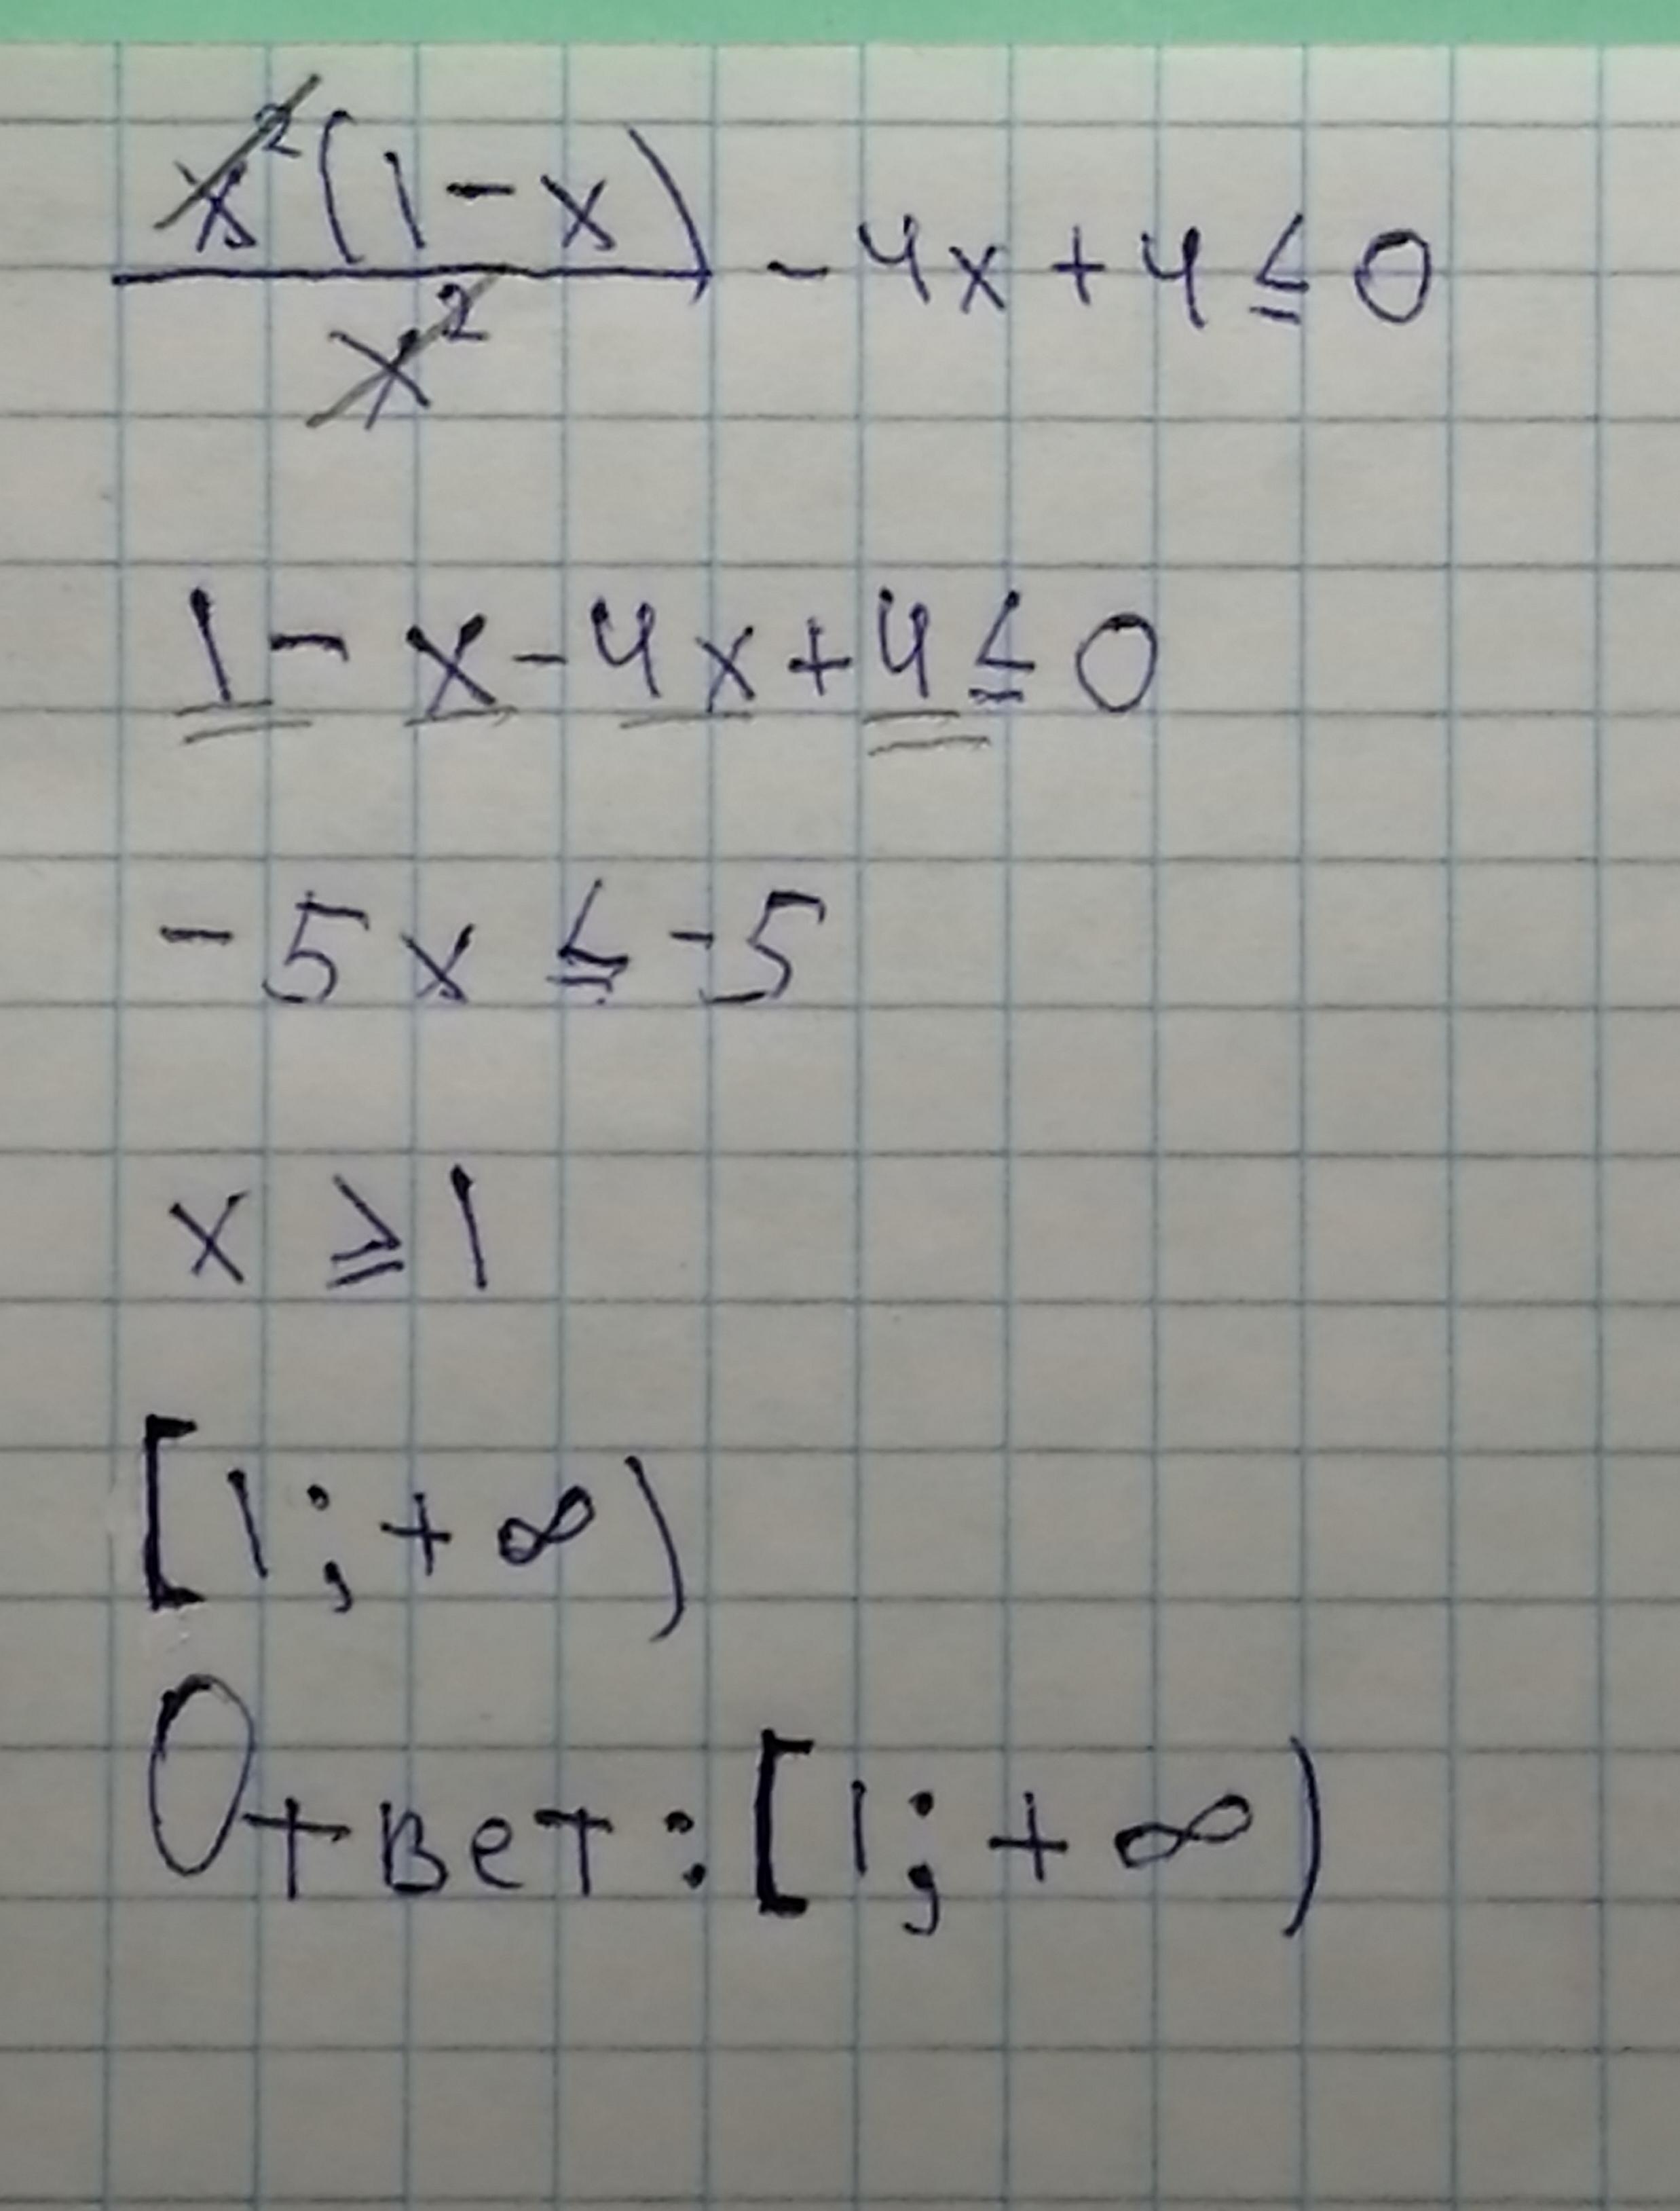 x²(1-x)/x² - 4x + 4 ≤ 0
1 - x - 4x + 4 ≤ 0
-5x ≤ -5
x ≥ 1
[1; +∞)
Ответ: [1; +∞)